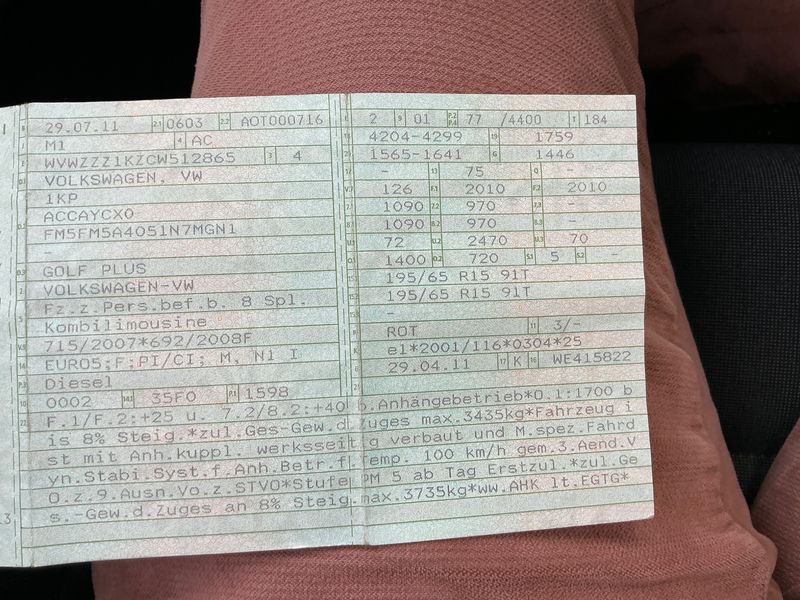 B 29.07.11 2.1 0603 2.2 AOT000716
J M1 4 AC
E WVWZZZ1KZCW512865 3 4
D.1 VOLKSWAGEN, VW
1KP
D.2 ACCAYCX0
FM5FM5A4051N7MGN1
-
D.3 GOLF PLUS
2 VOLKSWAGEN-VW
5 Fz.z.Pers.bef.b. 8 Spl.
Kombilimousine
V.9 715/2007*692/2008F
14 EURO5;F;PI/CI; M, N1 I
P.3 Diesel
10 0002 14.1 35F0 P.1 1598
L 2 9 01 P.2 P.4 77 /4400 T 184
18 4204-4299 19 1759
20 1565-1641 G 1446
12 - 13 75 Q -
V.7 126 F.1 2010 F.2 2010
7.1 1090 7.2 970 7.3 -
8.1 1090 8.2 970 8.3 -
U.1 72 U.2 2470 U.3 70
O.1 1400 O.2 720 S.1 5 S.2 -
15.1 195/65 R15 91T
15.2 195/65 R15 91T
15.3 -
R ROT 11 3/-
K e1*2001/116*0304*25
6 29.04.11 17 K 16 WE415822
21
22 F.1/F.2:+25 u. 7.2/8.2:+40 b.Anhängebetrieb*O.1:1700 b
is 8% Steig.*zul.Ges-Gew.d.Zuges max.3435kg*Fahrzeug i
st mit Anh.kuppl. werksseitig verbaut und M.spez.Fahrd
yn.Stabi.Syst.f.Anh.Betr.f.Temp. 100 km/h gem.3.Aend.V
O.z.9.Ausn.Vo.z.STVO*Stufe PM 5 ab Tag Erstzul.*zul.Ge
s.-Gew.d.Zuges an 8% Steig.max.3735kg*ww.AHK lt.EGTG*